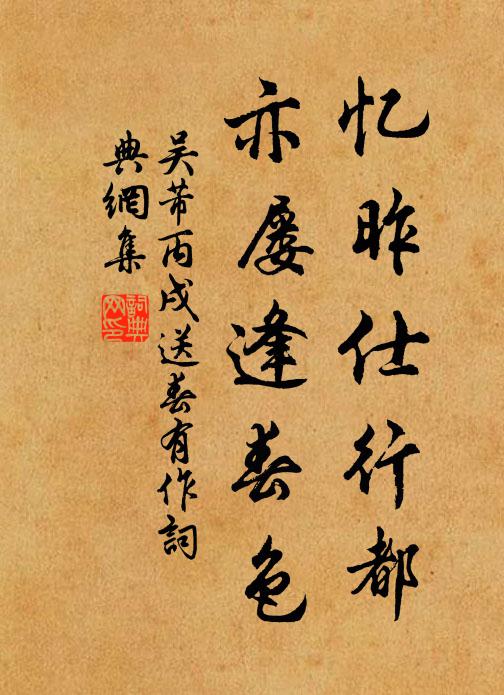 忆昨仕行都
亦屡逢春色
吴芾丙戌送春有作詞
典網集
詞典网印